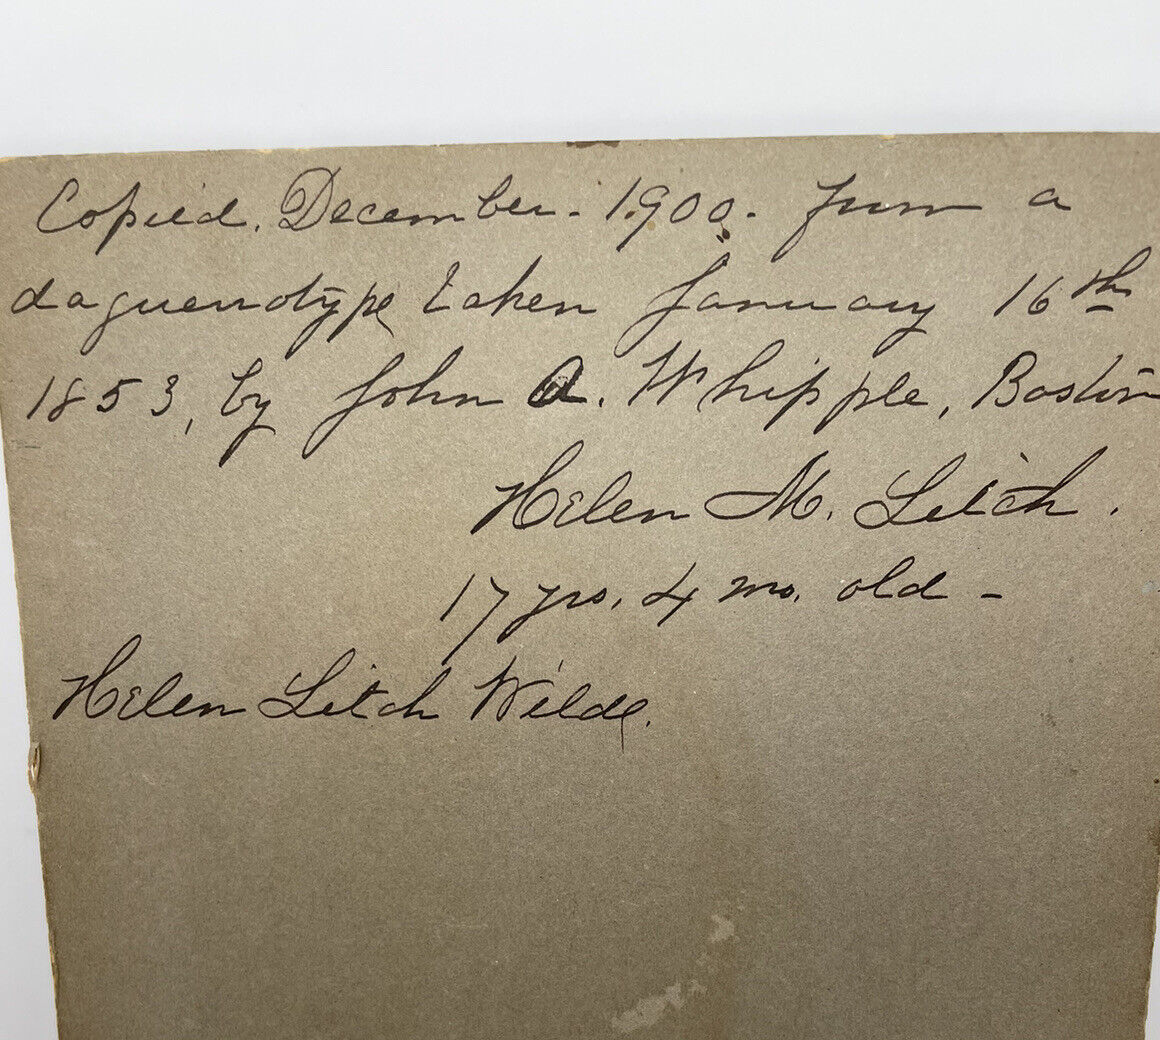 Copied. December. 1900. from a
daguerrotype taken January 16th
1853, by John A. Whipple, Boston
Helen M. Leitch.
17 yrs. 4 mo. old -
Helen Leitch Wilde.